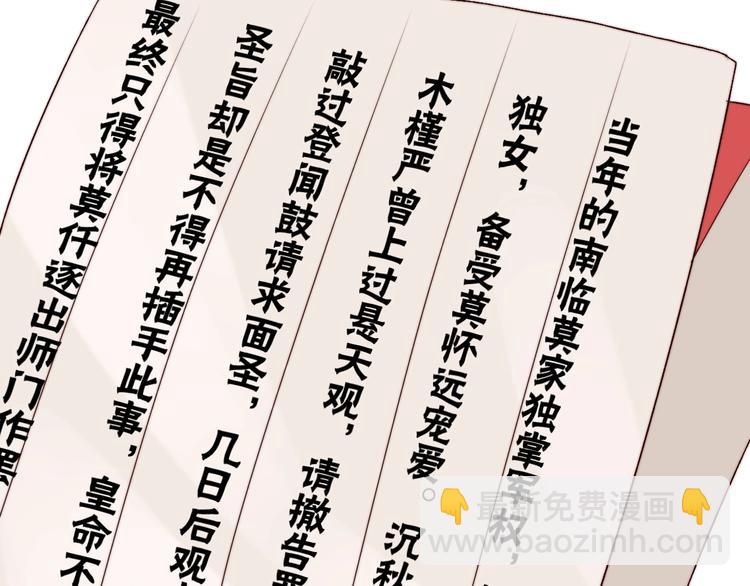 当年的南临莫家独掌军权，
独女，备受莫怀远宠爱。沉秋
木槿严曾上过悬天观，请撤告罪
敲过登闻鼓请求面圣，几日后观
圣旨却是不得再插手此事，皇命不
最终只得将莫仟逐出师门作罢
最新免费漫画
www.baozimh.com